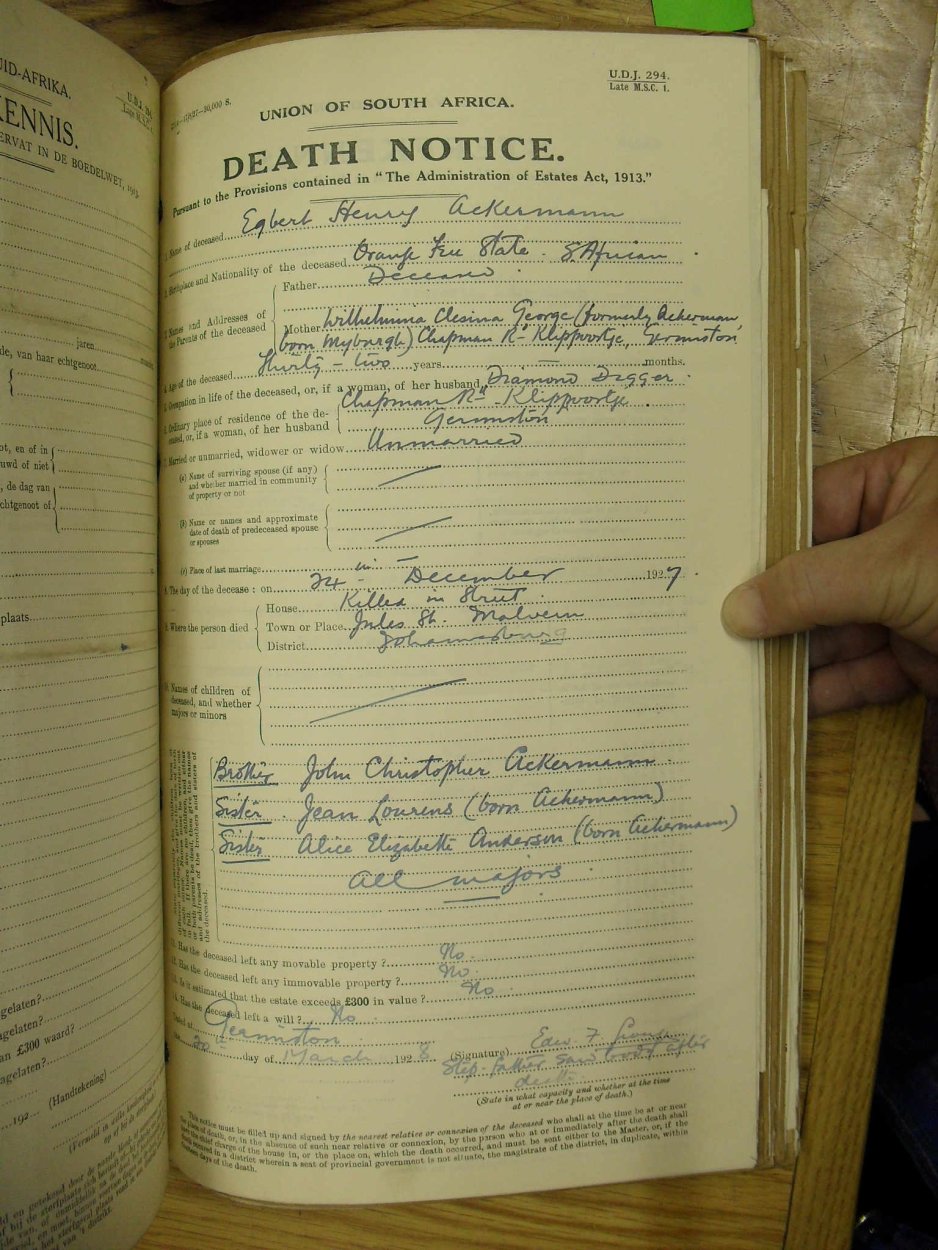 UID-AFRIKA.
U.D.J. 294
Late M.S.C. 1.
KENNIS.
ERVAT IN DE BOEDELWET, 1913.
jaren
de, van haar echtgenoot
ot, en of in
uwd of niet
, de dag van
chtgenoot of
plaats
gelaten?
agelaten?
an £300 waard?
agelaten?
192
(Handtekening)
U.D.J. 294.
Late M.S.C. 1.
UNION OF SOUTH AFRICA.
DEATH NOTICE.
Pursuant to the Provisions contained in "The Administration of Estates Act, 1913."
1. Name of deceased Egbert Henry Ackermann
2. Birthplace and Nationality of the deceased Orange Free State. S African
3. Names and Addresses of the Parents of the deceased
Father Deceased
Mother Wilhelmina Clesina George (formerly Ackerman
born Myburgh) Chapman Rd Klippoortje, Germiston
4. Age of the deceased Thirty-two years — months.
5. Occupation in life of the deceased, or, if a woman, of her husband Diamond Digger
6. Ordinary place of residence of the deceased, or, if a woman, of her husband
Chapman Rd - Klippoortje
Germiston
7. Married or unmarried, widower or widow Unmarried
(a) Name of surviving spouse (if any)
and whether married in community
of property or not
(b) Name or names and approximate
date of death of predeceased spouse
or spouses
(c) Place of last marriage —
8. The day of the decease : on 24th December 1927
9. Where the person died
House Killed in Street
Town or Place Jules St. Malvern
District Johannesburg
10. Names of children of
deceased, and whether
majors or minors
Brother John Christopher Ackermann
Sister Jean Lourens (born Ackermann)
Sister Alice Elizabeth Anderson (born Ackermann)
All majors
11. Has the deceased left any movable property ? No
12. Has the deceased left any immovable property ? No
13. Is it estimated that the estate exceeds £300 in value ? No
14. Has the deceased left a will ? No
Dated at Germiston
the 20th day of March 1928
(Signature) Edw F
Step-father saw body after
death
(State in what capacity and whether at the time
at or near the place of death.)
This notice must be filled up and signed by the nearest relative or connexion of the deceased who shall at the time be at or near
the place of death, or, in the absence of such near relative or connexion, by the person who at or immediately after the death shall
have the chief charge of the house in, or the place on, which the death occurred, and must be sent either to the Master, or, if the
death occurred in a district wherein a seat of provincial government is not situate, the magistrate of the district, in duplicate, within
fourteen days of the death.